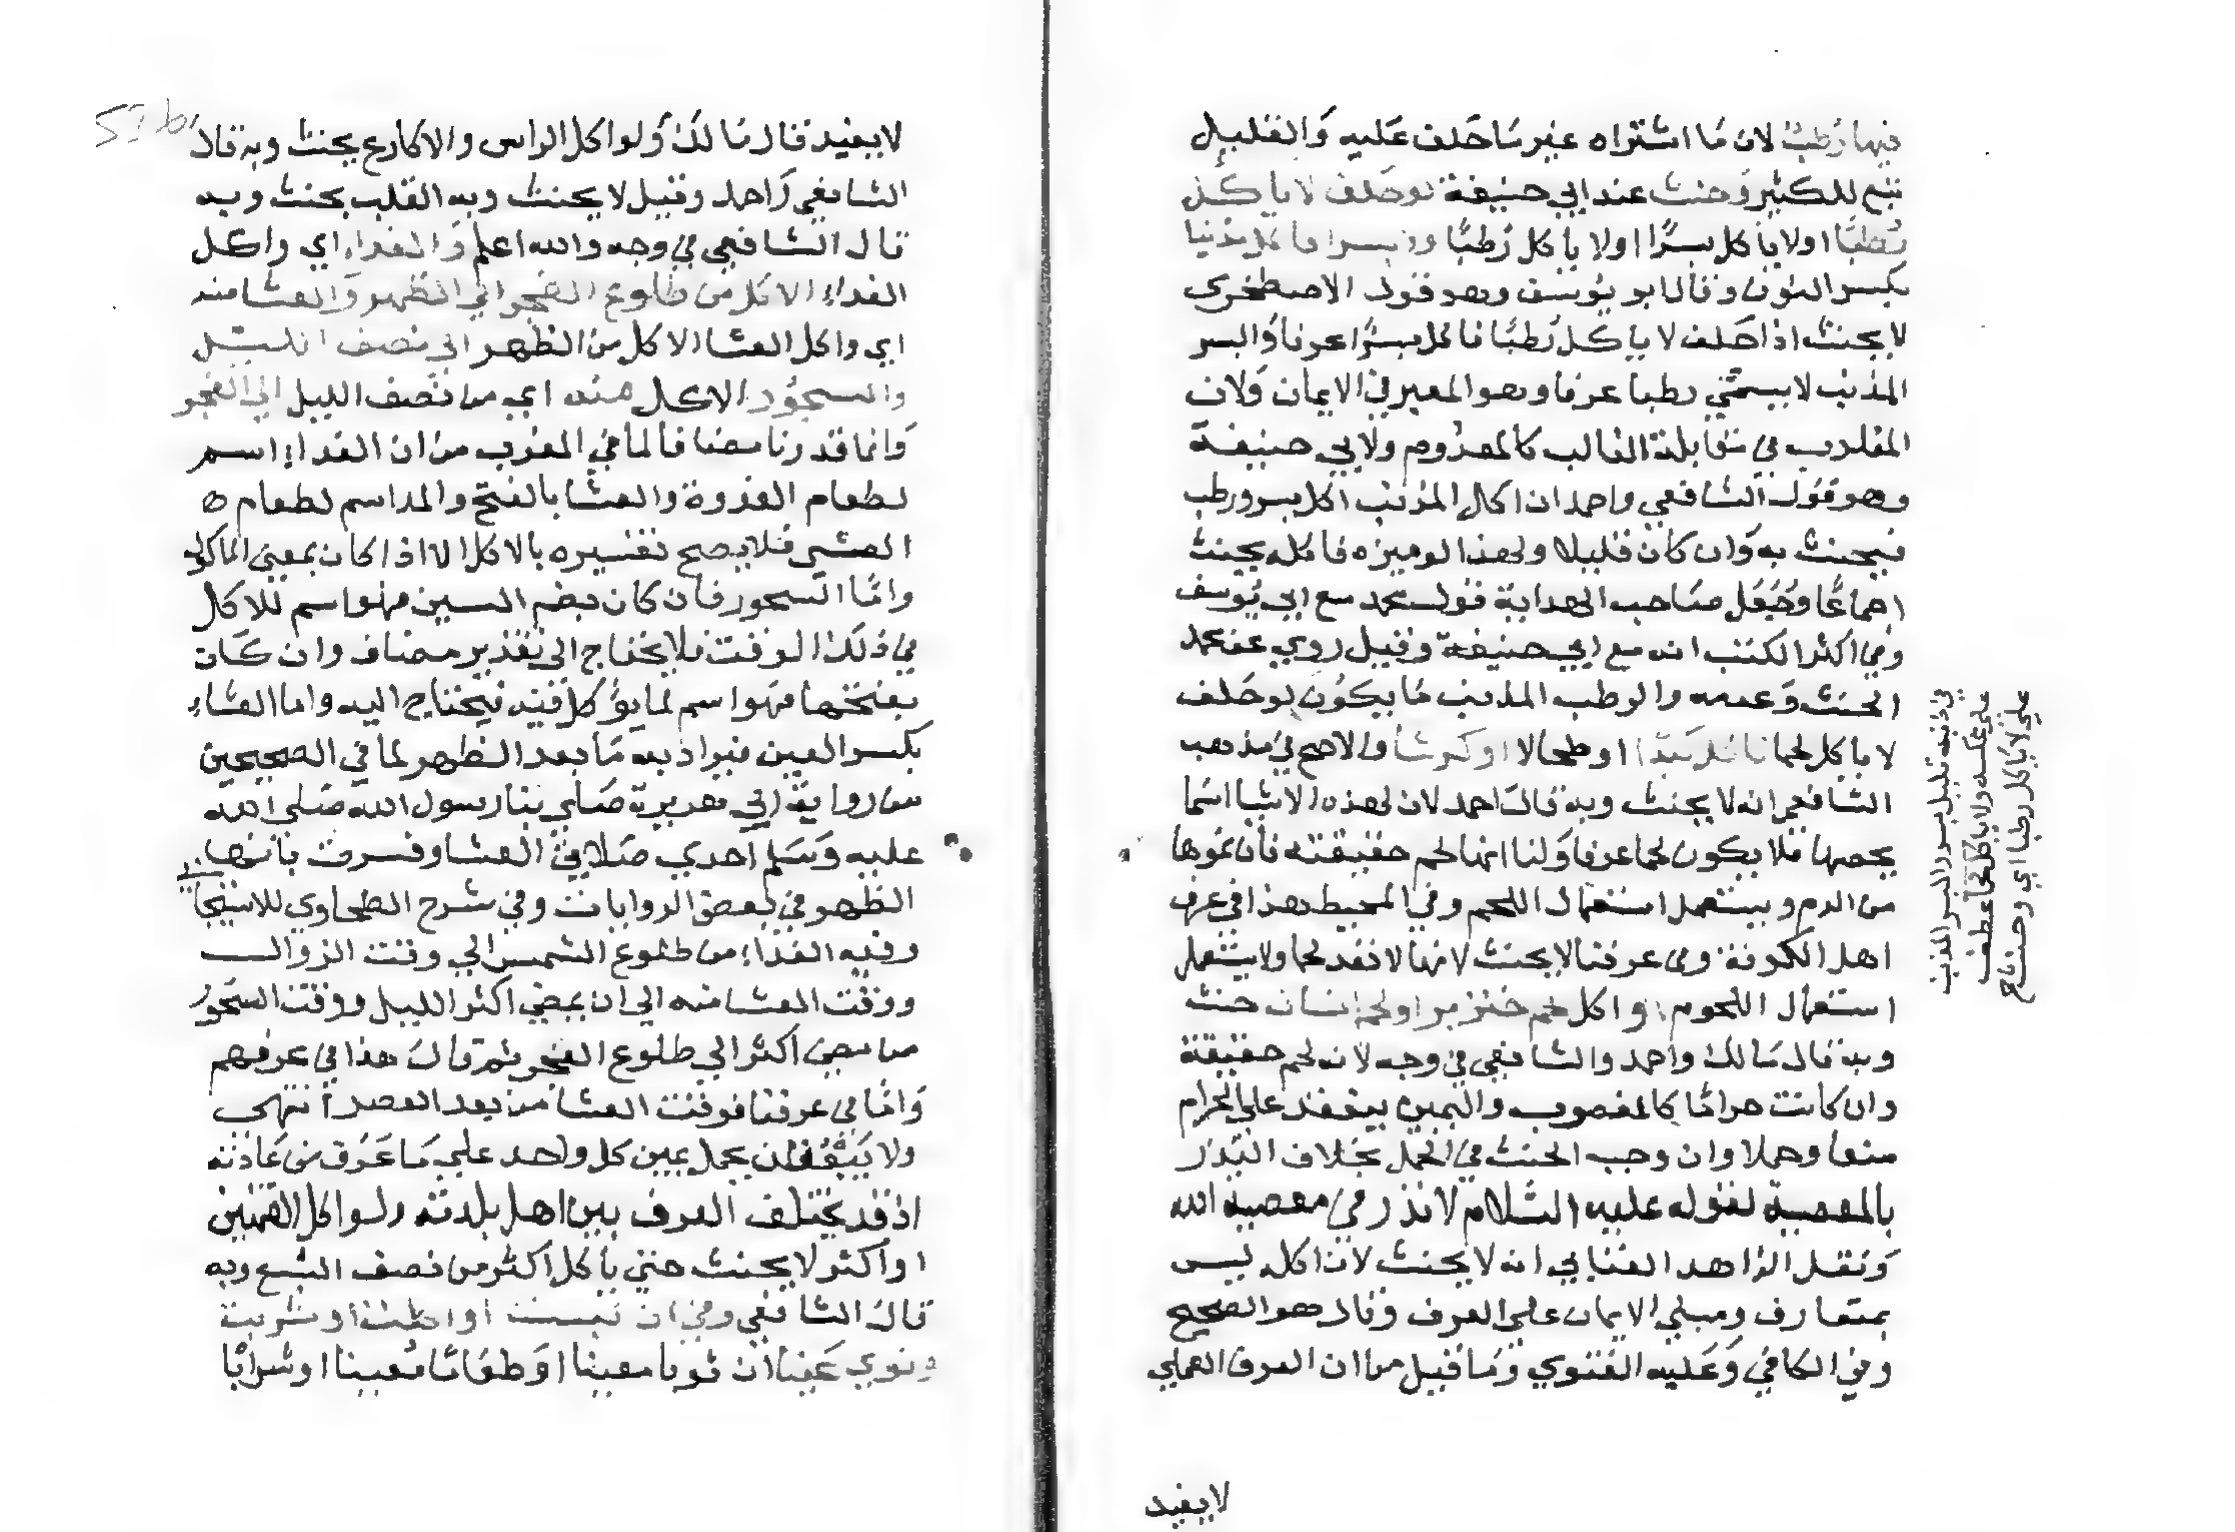 فيها رُطبٌ لان مَا اشتراه غير مَا حَلف عَليه وَالقليل
تبع للكثير وَحنث عند ابي حنيفة لو حَلف لا ياكل
رُطبًا او لا ياكل بسرًا او لا ياكل رُطبًا ولا بسرا فاكل مذنبا
بكسر النون وقال ابو يُوسف وهو قول الاصطخري
لا يحنث اذا حَلف لا ياكل رُطبًا فاكل بسرًا عرفا وَالبسر
المذنب لا يسمّي رطبا عرفا وهو المعتبر في الايمان وَلان
المغلوب في مقابلة الغالب كالمعدوم ولابي حنيفة
وهو قول الشافعي واحمد ان اكل المذنب اكل بسر ورطب
فيحنث به وَان كان قليلا ولهذا لو ميزه فاكله يحنث
اجماعًا وجَعَل صَاحب الهداية قول محمد مع ابي يُوسف
وفي اكثر الكتب انه مع ابي حنيفة وقيل روي عن محمد
الحنث وَعدمه والرطب المذنب مَا يكوُن لو حَلف
لا ياكل لحما فاكل كبدًا او طحالا او كرشا والاصح في مذهب
الشافعي انه لا يحنث وبه قال احمد لان لهذه الاشيا اسمًا
يخصها فلا يكون لحما عرفا وَلنا انها لحم حقيقته فان نموها
من الدم ويستعمل استعمال اللحم وفي المحيط هذا في عرف
اهل الكوفة وفي عرفنا لا يحنث لانها لا تعد لحما ولا يستعمل
استعمال اللحوم او اكل لحم خنزير او لحم انسان حنث
وبه قال مَالك واحمد والشافعي في وجه لانه لحم حقيقة
وان كانت حرامًا كالمغصوب واليمين ينعقد على الحرام
منعا وحملا وان وجب الحنث في الحمل بخلاف النذر
بالمعصية لقوله عليه السّلام لا نذر في معصية الله
وَنقل الزاهد العتابي انه لا يحنث لان اكله ليس
بمتعارف ومبني الايمان على العرف وقال هو الصحيح
وفي الكافي وَعَليه الفتوي وَمَا قيل من ان العرف العملي
في ذنبه قليل بسر والبسر المذنب
علي عكسه ولا ياكل لحما عطف
علي لا ياكل رطبا اي وحنث
لا يفيد
لا يفيد قال مَالك وَلو اكل الراس والاكارع يحنث وبه قال
الشافعي وَاحمد وقيل لا يحنث وبه القلب يحنث وبه
قال الشافعي في وجه والله اعلم وَالغداء اي واكل
الغداء الاكل من طلوع الفجر الي الظهر وَالعشا منه
اي واكل العشا الاكل من الظهر الي نصف الليل
والسحُور الاكل منه اي من نصف الليل الي الفجر
وَانما قدرنا مضافا لما في المغرب من ان الغداء اسم
لطعام الغدوة والعشا بالفتح والمد اسم لطعام
العشي فلا يصح تفسيره بالاكل الا اذا كان بمعني الماكول
وامّا السحور فان كان بضم السين فهو اسم للاكل
في ذلك الوقت فلا يحتاج الى تقدير مضاف وان كان
بفتحها فهو اسم لما يؤكل فيه فيحتاج اليه واما العشاء
بكسر العين فيراد به مَا بعد الظهر لما في الصحيحين
من رواية ابي هريرة صَلي بنا رسول الله صَلى الله
عليه وَسَلم احدي صَلاتي العشا وفسرت بانها
الظهر في بعض الروايات وفي شرح الطحاوي للاسبيجابي
وقته الغداء من طلوع الشمس الي وقت الزوال
ووقت العشا منه الي ان يمضي اكثر الليل ووقت السحُور
من مضي اكثر الي طلوع الفجر ثم قال هذا في عرفهم
وَامّا في عرفنا فوقت العشا من بعد العصر انتهى
ولا يحمل يمين كل واحد علي مَا عَرف من عَادته
اذ قد يختلف العرف بين اهل بلدته ولو اكل لقمتين
او اكثر لا يحنث حتي ياكل اكثر من نصف الشبع وبه
قال الشافعي وفي ان لبست او اكلت او شربت
ونوي عَينا ان ثوبا معينا او طعَامًا مُعينا او شرابًا